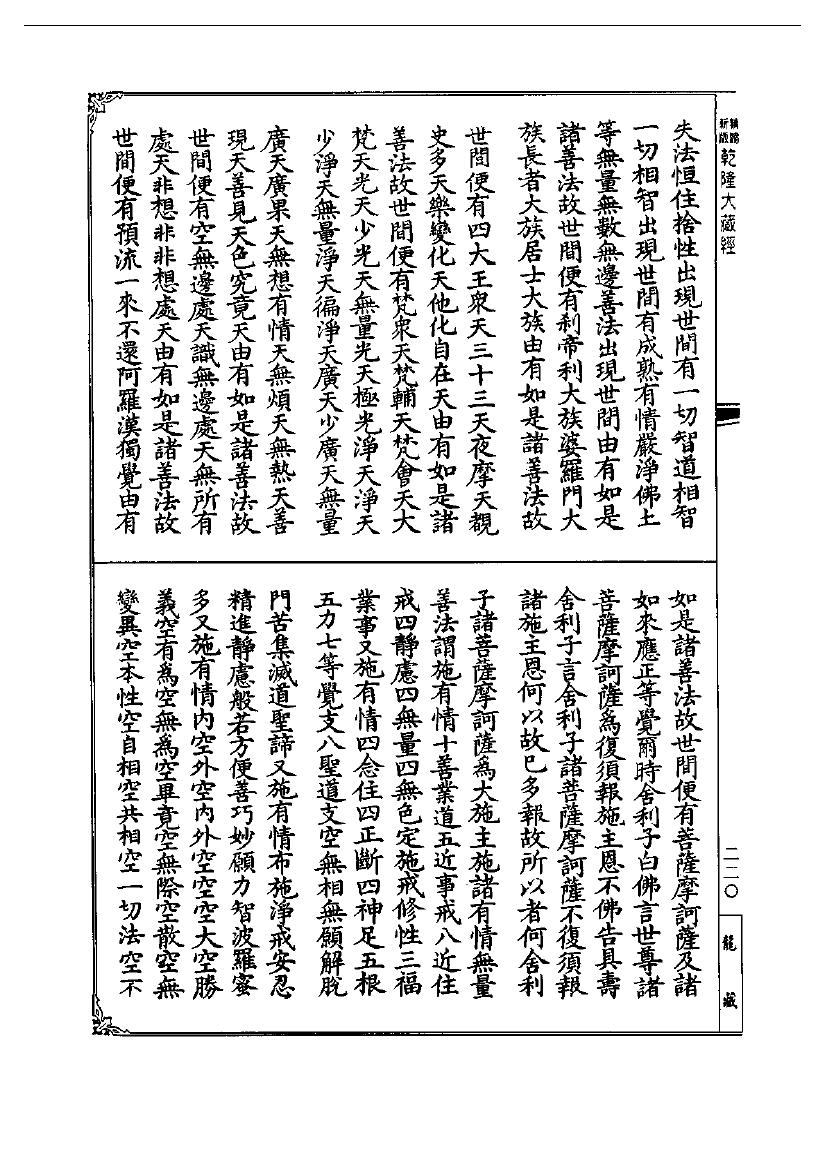 乾隆大藏經
失法恒住捨性出現世間有一切智道相智
一切相智出現世間有成熟有情嚴淨佛土
等無量無數無邊善法出現世間由有如是
諸善法故世間便有刹帝利大族婆羅門大
族長者大族居士大族由有如是諸善法故
世間便有四大王衆天三十三天夜摩天覩
史多天樂變化天他化自在天由有如是諸
善法故世間便有梵衆天梵輔天梵會天大
梵天光天少光天無量光天極光淨天淨天
少淨天無量淨天徧淨天廣天少廣天無量
廣天廣果天無想有情天無煩天無熱天善
現天善見天色究竟天由有如是諸善法故
世間便有空無邊處天識無邊處天無所有
處天非想非非想處天由有如是諸善法故
世間便有預流一來不還阿羅漢獨覺由有
如是諸善法故世間便有菩薩摩訶薩及諸
如來應正等覺爾時舍利子白佛言世尊諸
菩薩摩訶薩爲復須報施主恩不佛告具壽
舍利子言舍利子諸菩薩摩訶薩不復須報
諸施主恩何以故已多報故所以者何舍利
子諸菩薩摩訶薩爲大施主施諸有情無量
善法謂施有情十善業道五近事戒八近住
戒四靜慮四無量四無色定施戒修性三福
業事又施有情四念住四正斷四神足五根
五力七等覺支八聖道支空無相無願解脫
門苦集滅道聖諦又施有情布施淨戒安忍
精進靜慮般若方便善巧妙願力智波羅蜜
多又施有情內空外空內外空空空大空勝
義空有爲空無爲空畢竟空無際空散空無
變異空本性空自相空共相空一切法空不
二二〇
龍藏